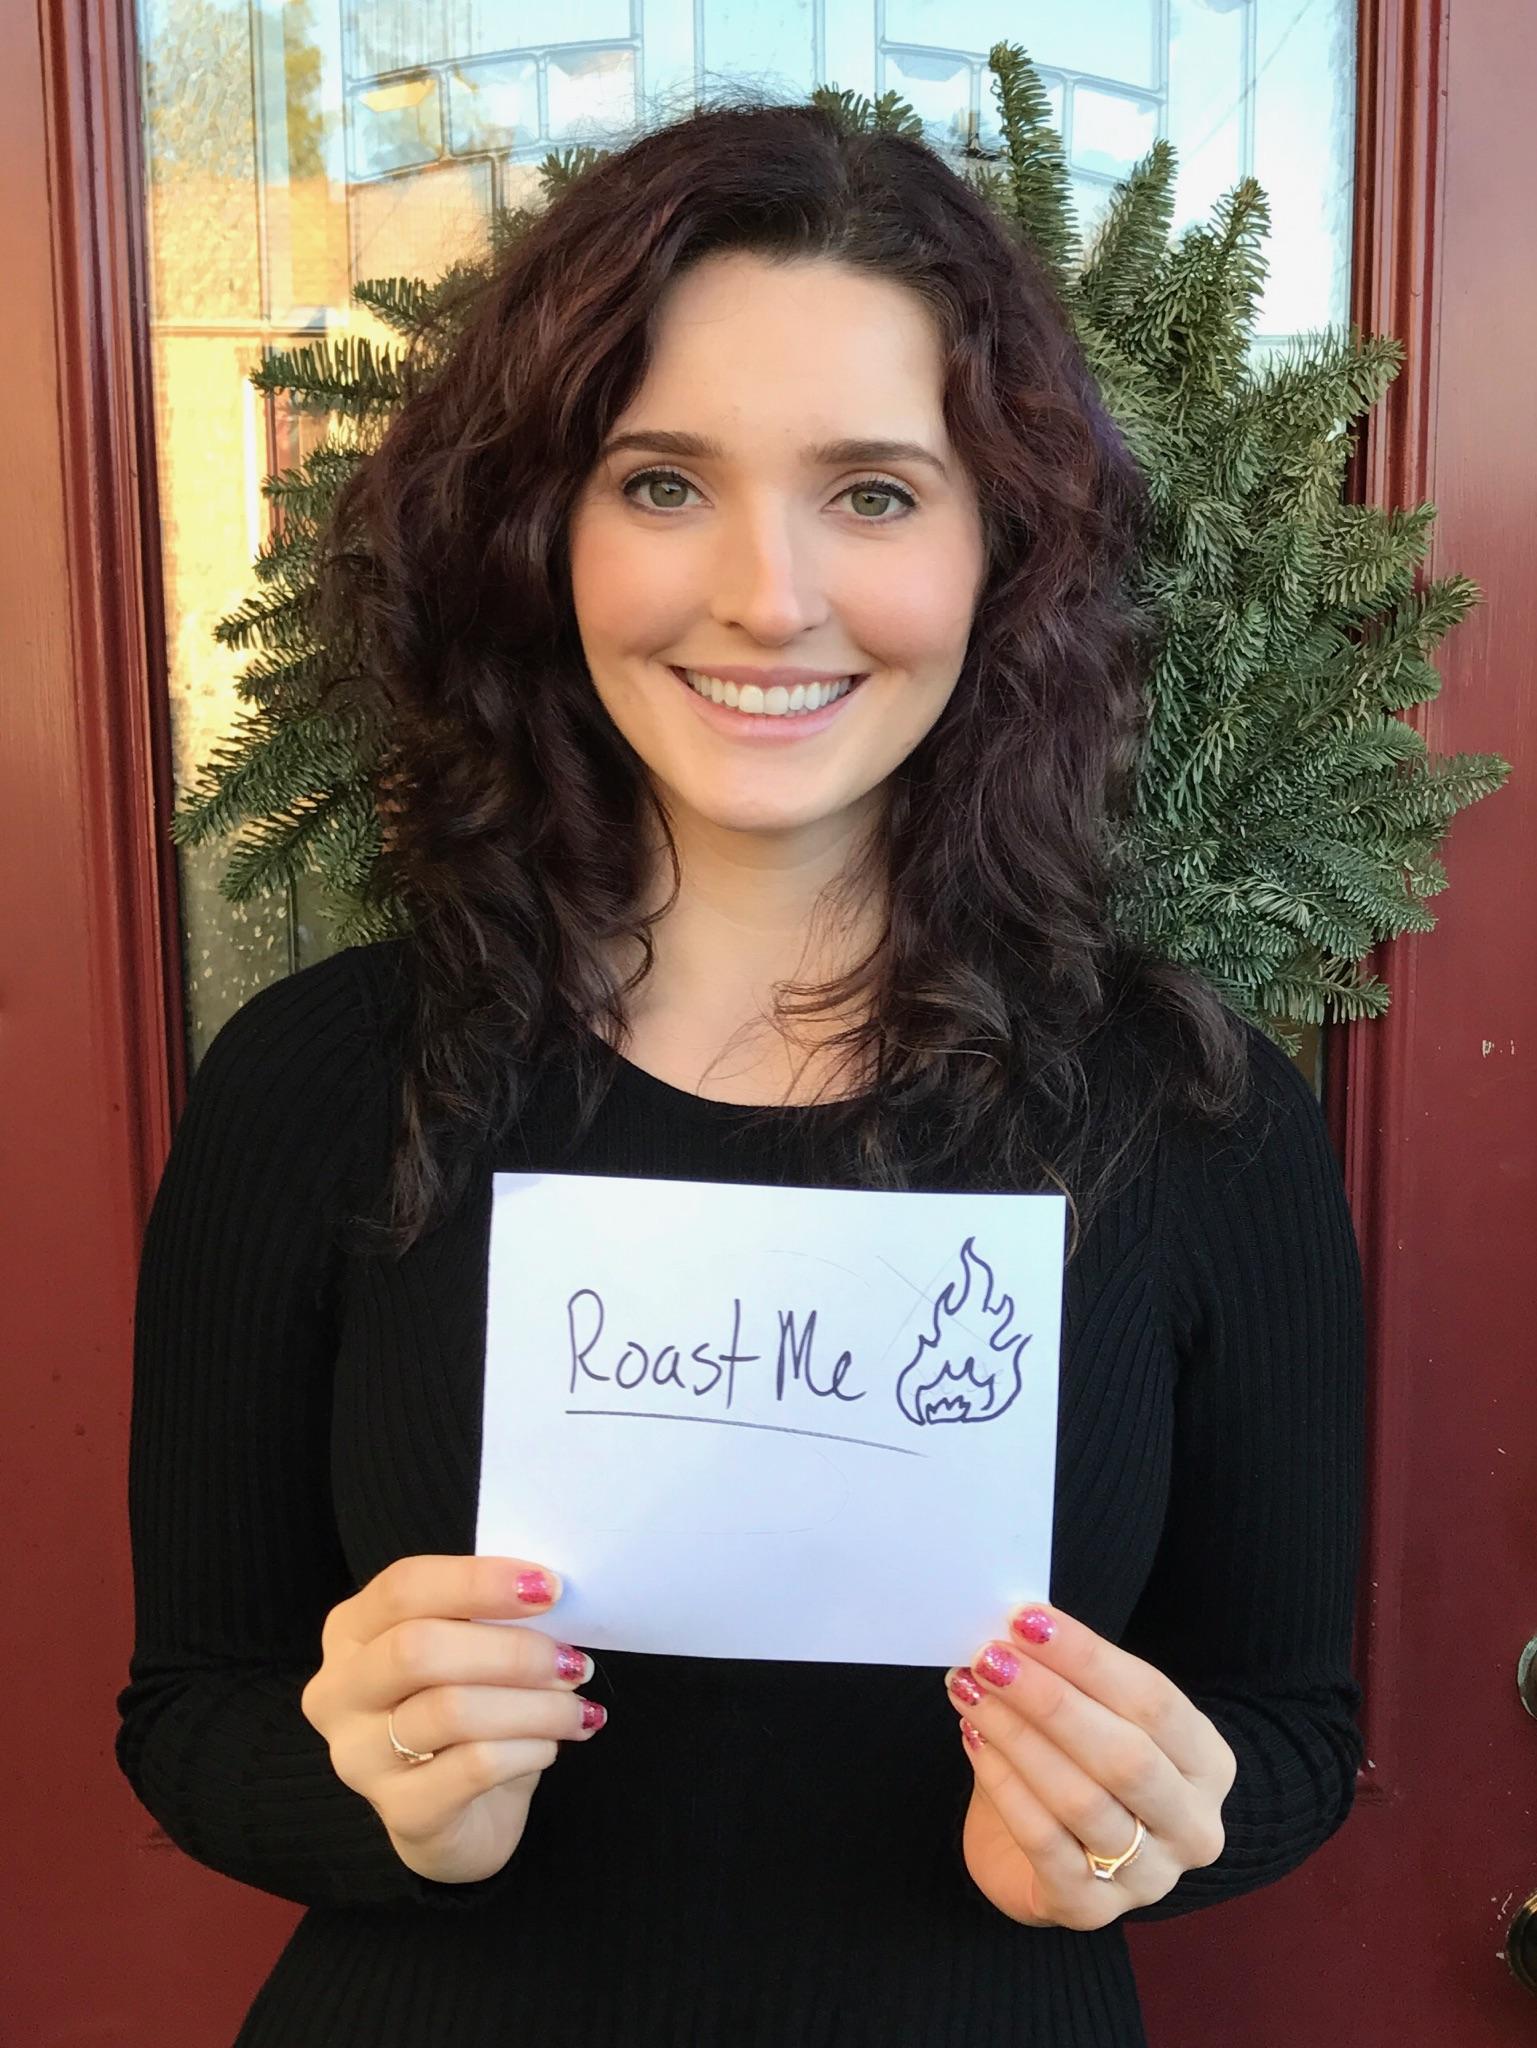 Roast Me